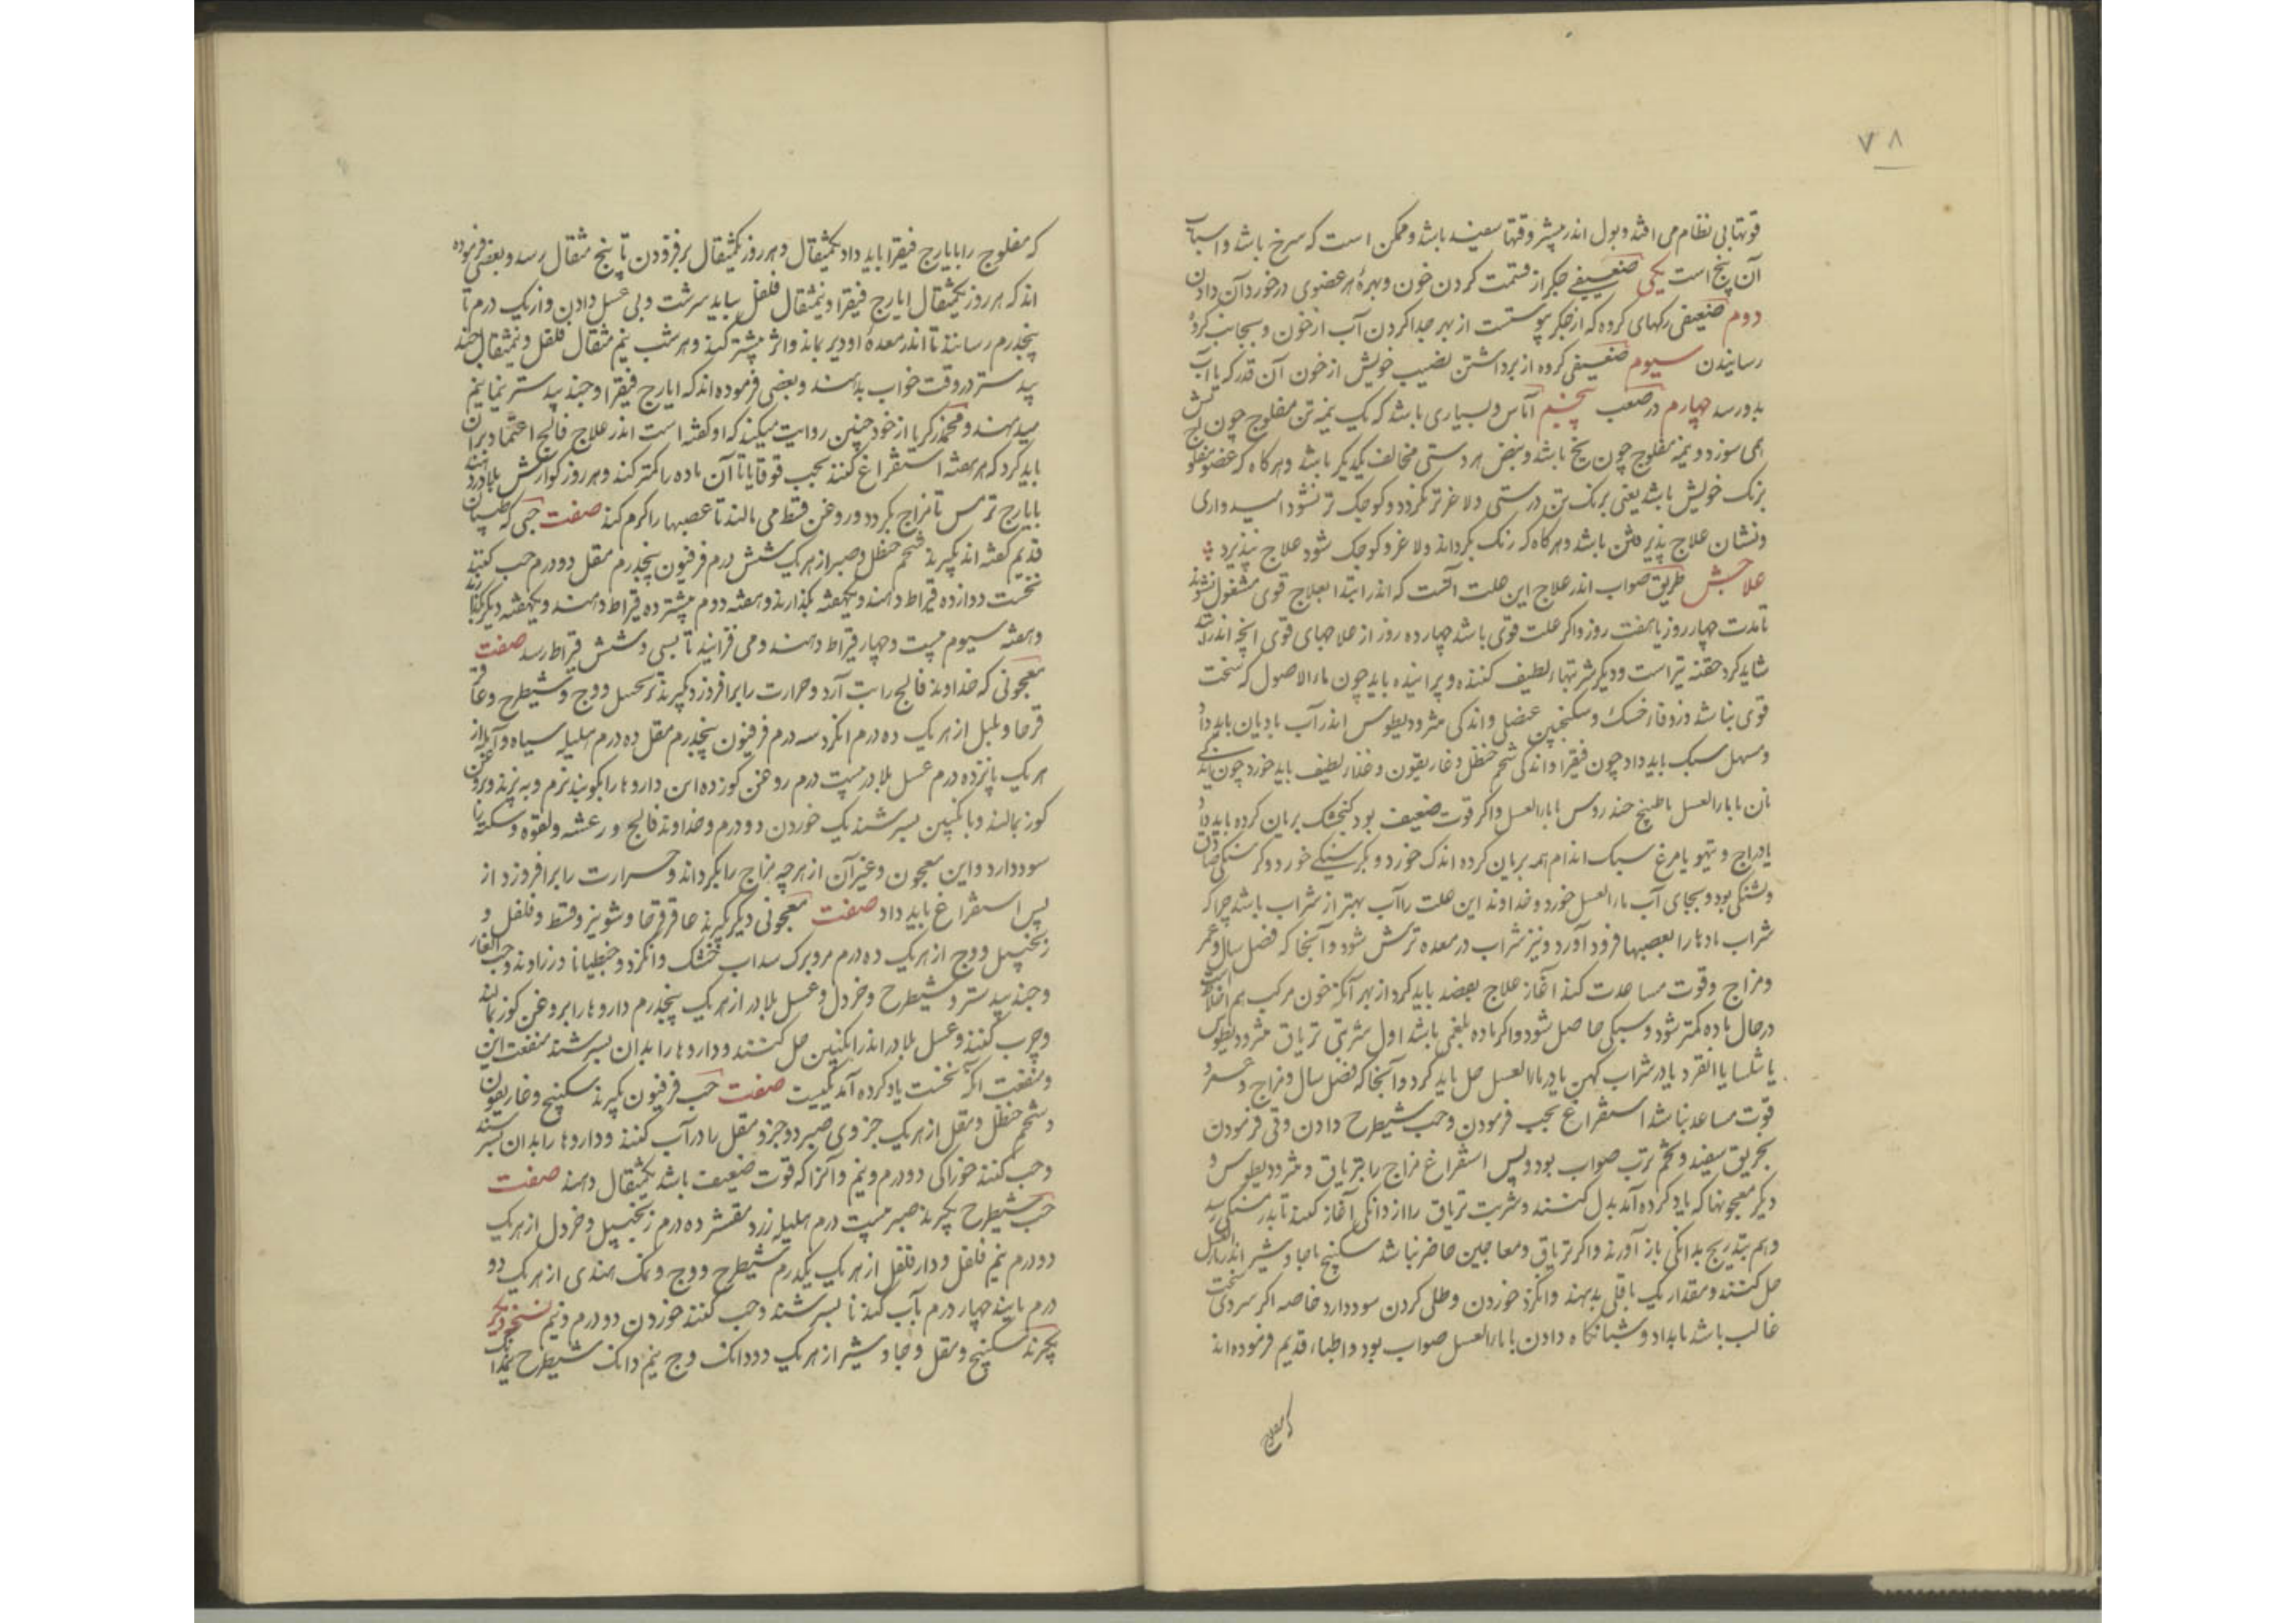 ۷۸
قوتها بی نظام می افتد و بول اندر بیشتر وقتها سفید باشد و ممکن است که سرخ باشد و اسباب
آن پنج است یکی ضعیفی جگر از قسمت کردن خون و بهرهٔ هر عضوی در خورد آن دادن
دوم ضعیفی رکهای کرده که از جکر پیوستست از بهر جدا کردن آب از خون و بجانب کرده
رسانیدن سیوم ضعیفی کرده از برداشتن نصیب خویش از خون آن قدر که با آب
بدو رسد چهارم در صعب پنجم آماس و بسیاری باشد که یک نیمه تن مفلوج چون آتش
همی سوزد و نیمه مفلوج چون یخ باشد و نبض هر دستی مخالف یکدیکر باشد و هرکاه که عضو مفلوج
برنک خویش باشد یعنی برنک تن درستی و لاغرتر نکردد و کوچک تر نشود امیدواری
و نشان علاج پذیرفتن باشد و هرکاه که رنک بکرداند و لاغر و کوچک شود علاج نپذیرد
علاجش طریق صواب اندر علاج این علت آنست که اندر ابتدا بعلاج قوی مشغول نشوند
تا مدت چهار روز یا هفت روز و اکر علت قوی باشد چهارده روز از علاجهای قوی انچه اندر ابتدا
شاید کرد حقنه تیز است و دیکر شربتهاء لطیف کننده و پزاننده باید چون ماءالاصول که سخت
قوی نباشد و زوفا و خسک و سکنجبین عنصلی و اندکی مثرودیطوس اندر آب بادیان باید داد
و مسهل سبک باید داد چون فیقرا و اندکی شحم حنظل و غاریقون و غذاء لطیف باید خورد چون اندکی
نان با ماءالعسل یا طبیخ خندروس با ماءالعسل و اکر قوت ضعیف بود کنجشک بریان کرده باید داد
یا دراج و تیهو یا مرغ سبک اندام همه بریان کرده اندک خورد و بکرسنکی خورد و کرسنکی صادق
و تشنکی بود و بجای آب ماءالعسل خورد و خداوند این علت را آب بهتر از شراب باشد چرا که
شراب مادها را بعصبها فرود آورد و نیز شراب در معده ترش شود و آنجا که فصل سال و عمر
و مزاج و قوت مساعدت کند آغاز علاج بفصد باید کرد از بهر آنکه خون مرکب هم اخلاط است
در حال ماده کمتر شود و سبکی حاصل شود و اکر ماده بلغمی باشد اول شربتی تریاق مثرودیطوس
یا شلسا یا انقردیا در شراب کهن یا در ماءالعسل حل باید کرد و آنجا که فصل سال و مزاج و عمر و
قوت مساعد نباشد استفراغ بحب فرمودن و حب شیطرج دادن و قی فرمودن
بخربق سفید و تخم ترب صواب بود و پس استفراغ مزاج را بتریاق و مثرودیطوس و
دیکر معجونها که یاد کرده آمد بدل کنند و شربت تریاق را از دانکی آغاز کنند تا بدرمسنکی رسد
و هم بتدریج بدانکی باز آورند و اکر تریاق و معاجین حاضر نباشد سکبینج یا جاوشیر اندر ماءالعسل
حل کنند و مقدار یک باقلی بدهند و انکزد خوردن و طلی کردن سود دارد خاصه اکر سردی سخت
غالب باشد بامداد و شبانکاه دادن با ماءالعسل صواب بود و اطباء قدیم فرموده اند
که مفلوج
که مفلوج را بایارج فیقرا باید داد یکمثقال و هر روز یکمثقال بر فزودن تا پنج مثقال رسد و بعضی فرموده
اند که هر روز یکمثقال ایارج فیقرا و نیمثقال فلفل بباید سرشت و بی عسل دادن و از یک درم تا
پنجدرم رسانند تا اندر معدهٔ او دیر بماند و اثر بیشتر کند و هر شب نیم مثقال فلفل و نیمثقال جند
بیدستر در وقت خواب بدهند و بعضی فرموده اند که ایارج فیقرا و جند بیدستر نیمانیم
میدهند و محمد زکریا از خود چنین روایت میکند که او کفته است اندر علاج فالج اعتماد بر آن
باید کرد که هر هفته استفراغ کنند بحب قوقایا تا آن ماده را کمتر کند و هر روز کوارش بلادر دهند
با یارج ترمس تا مزاج بکردد و روغن قسط می مالند تا عصبها را کرم کند صفت حبی که طبیبان
قدیم کفته اند بکیرند شحم حنظل و صبر از هر یک شش درم فرفیون پنجدرم مقل دو درم حب کنند
نخست دوازده قیراط دهند و یکهفته بکذارند و هفته دوم بیشتر ده قیراط دهند و یکهفته دیکر بکذارند
و هفته سیوم بیست و چهار قیراط دهند و می فزایند تا بسی و شش قیراط رسد صفت
معجونی که خداوند فالج را بت آرد و حرارت را برافروزد بکیرند زنجبیل و وج و شیطرج و عاقر
قرحا و بلبل از هر یک ده درم انکزد سه درم فرفیون پنجدرم مقل ده درم هلیله سیاه و آمله از
هر یک پانزده درم عسل بلادر بیست درم روغن کوز ده اس داروها را بکوبند نرم و به پزند و بروغن
کوز بمالند و با نکبین بسرشند یک خوردن دو درم و خداوند فالج و رعشه و لقوه و سکته را
سود دارد و این معجون و غیر آن از هر چه مزاج را بکرداند و حرارت را برافروزد از
پس استفراغ باید داد صفت معجونی دیکر بکیرند عاقرقرحا و شونیز و قسط و فلفل و
زنجبیل و وج از هر یک ده درم مر و برک سداب خشک و انکزد و جنطیانا و زراوند و حب الغار
و جند بیدستر و شیطرج و خردل و عسل بلادر از هر یک پنجدرم داروها را بروغن کوز بمالند
و چرب کنند و عسل بلادر اندر انکبین حل کنند و داروها را بدان بسرشند منفعت این
و منفعت انکه نخست یاد کرده آمد یکیست صفت حب فرفیون بکیرند سکبینج و غاریقون
و شحم حنظل و مقل از هر یک جزوی صبر دو جزو مقل را در آب کنند و داروها را بدان بسرشند
و حب کنند خوراکی دو درم و نیم و آنرا که قوت ضعیف باشد یکمثقال دهند صفت
حب شیطرج بکیرند صبر بیست درم هلیله زرد مقشر ده درم زنجبیل و خردل از هر یک
دو درم نیم فلفل و دارفلفل از هر یک یکدرم شیطرج و وج و نمک هندی از هر یک دو
درم پانید چهار درم بآب کندنا بسرشند و حب کنند خوردن دو درم و نیم نسخه دیکر
بکیرند سکبینج و مقل و جاوشیر از هر یک دو دانک وج نیم دانک شیطرج